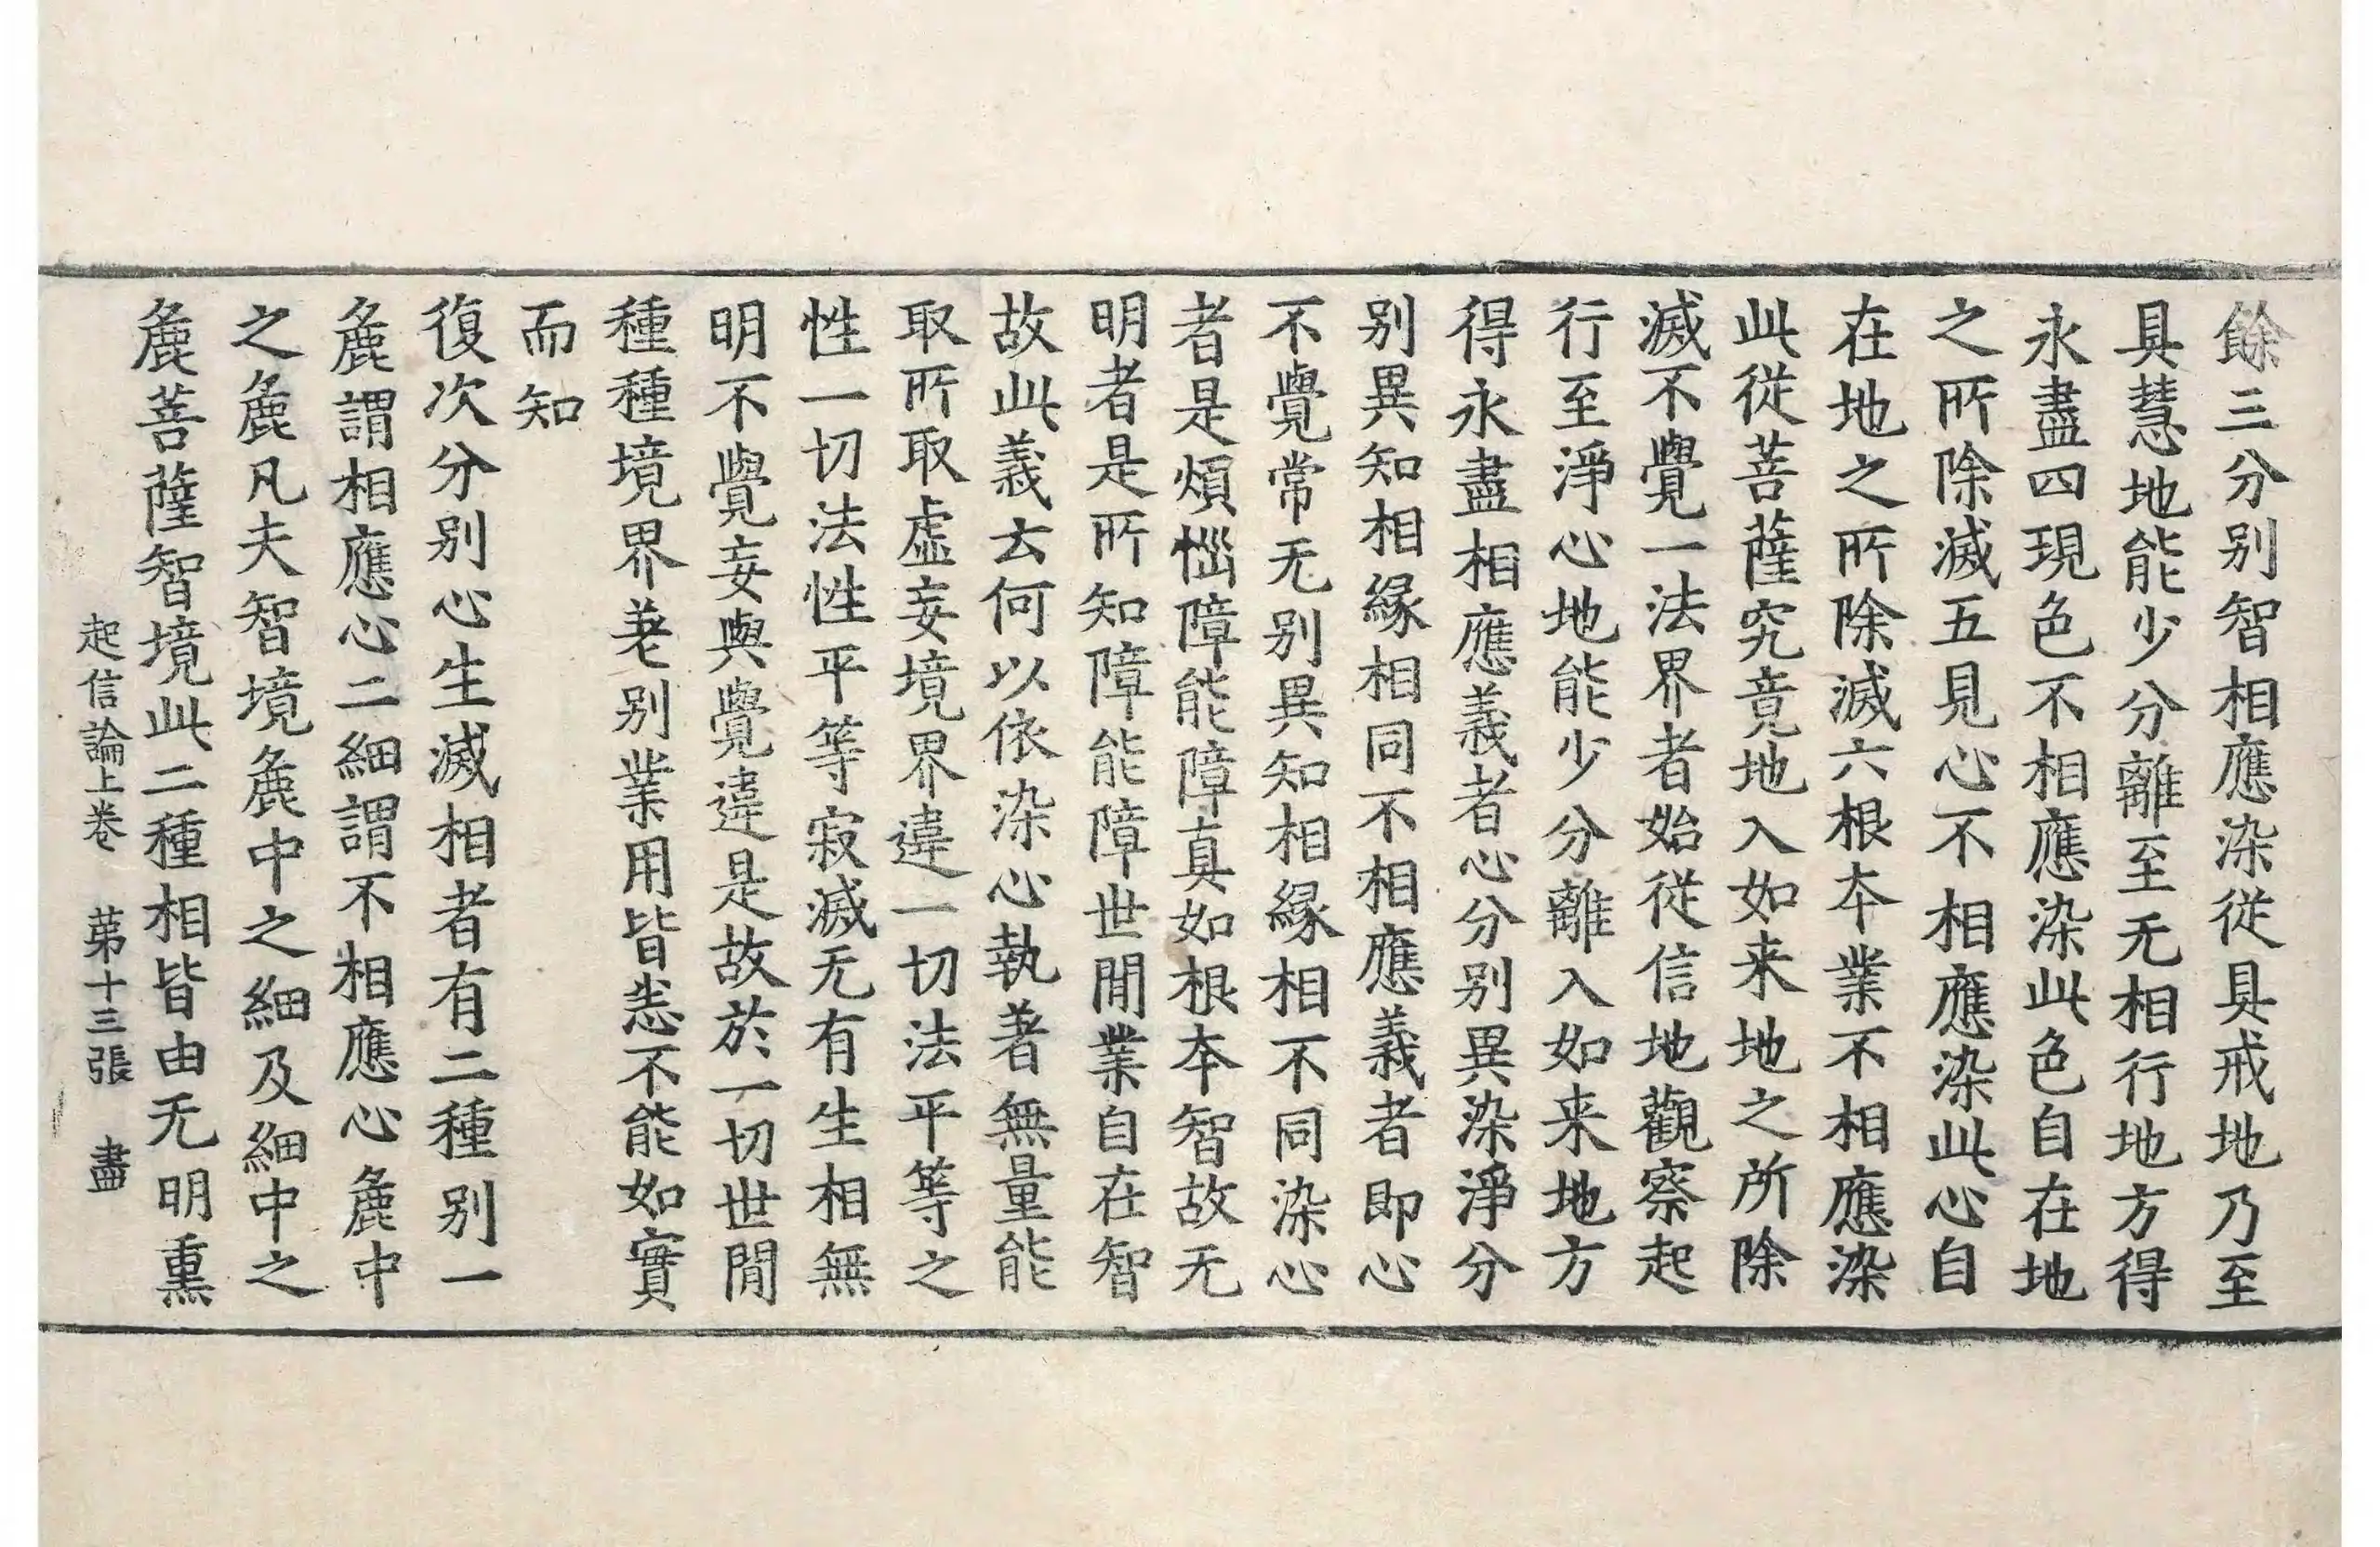 餘三分别智相應染從具戒地乃至
具慧地能少分離至无相行地方得
永盡四現色不相應染此色自在地
之所除滅五見心不相應染此心自
在地之所除滅六根夲業不相應染
此從菩薩究竟地入如来地之所除
滅不覺一法界者始從信地觀察起
行至淨心地能少分離入如来地方
得永盡相應義者心分别異染淨分
别異知相緣相同不相應義者即心
不覺常无别異知相緣相不同染心
者是煩惱障能障真如根夲智故无
明者是所知障能障世間業自在智
故此義云何以依染心執著無量能
取所取虛妄境界違一切法平等之
性一切法性平等寂滅无有生相無
明不覺妄與覺違是故於一切世間
種種境界差别業用皆悉不能如實
而知
復次分别心生滅相者有二種别一
麁謂相應心二細謂不相應心麁中
之麁凡夫智境麁中之細及細中之
麁菩薩智境此二種相皆由无明熏
起信論上卷　苐十三張　盡